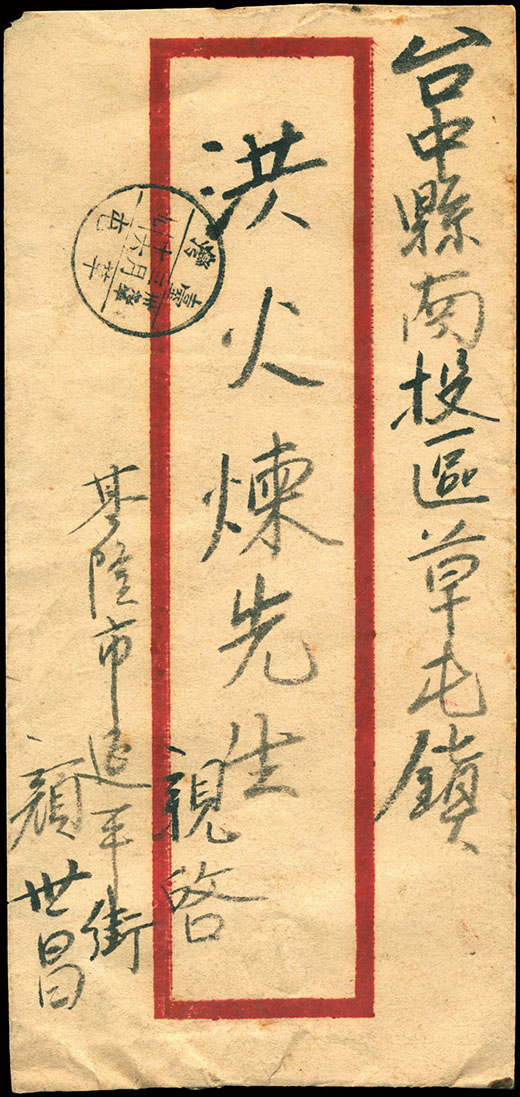 台中縣南投區草屯鎮
洪火煉先生
親啓
基隆市延平街
顏世昌